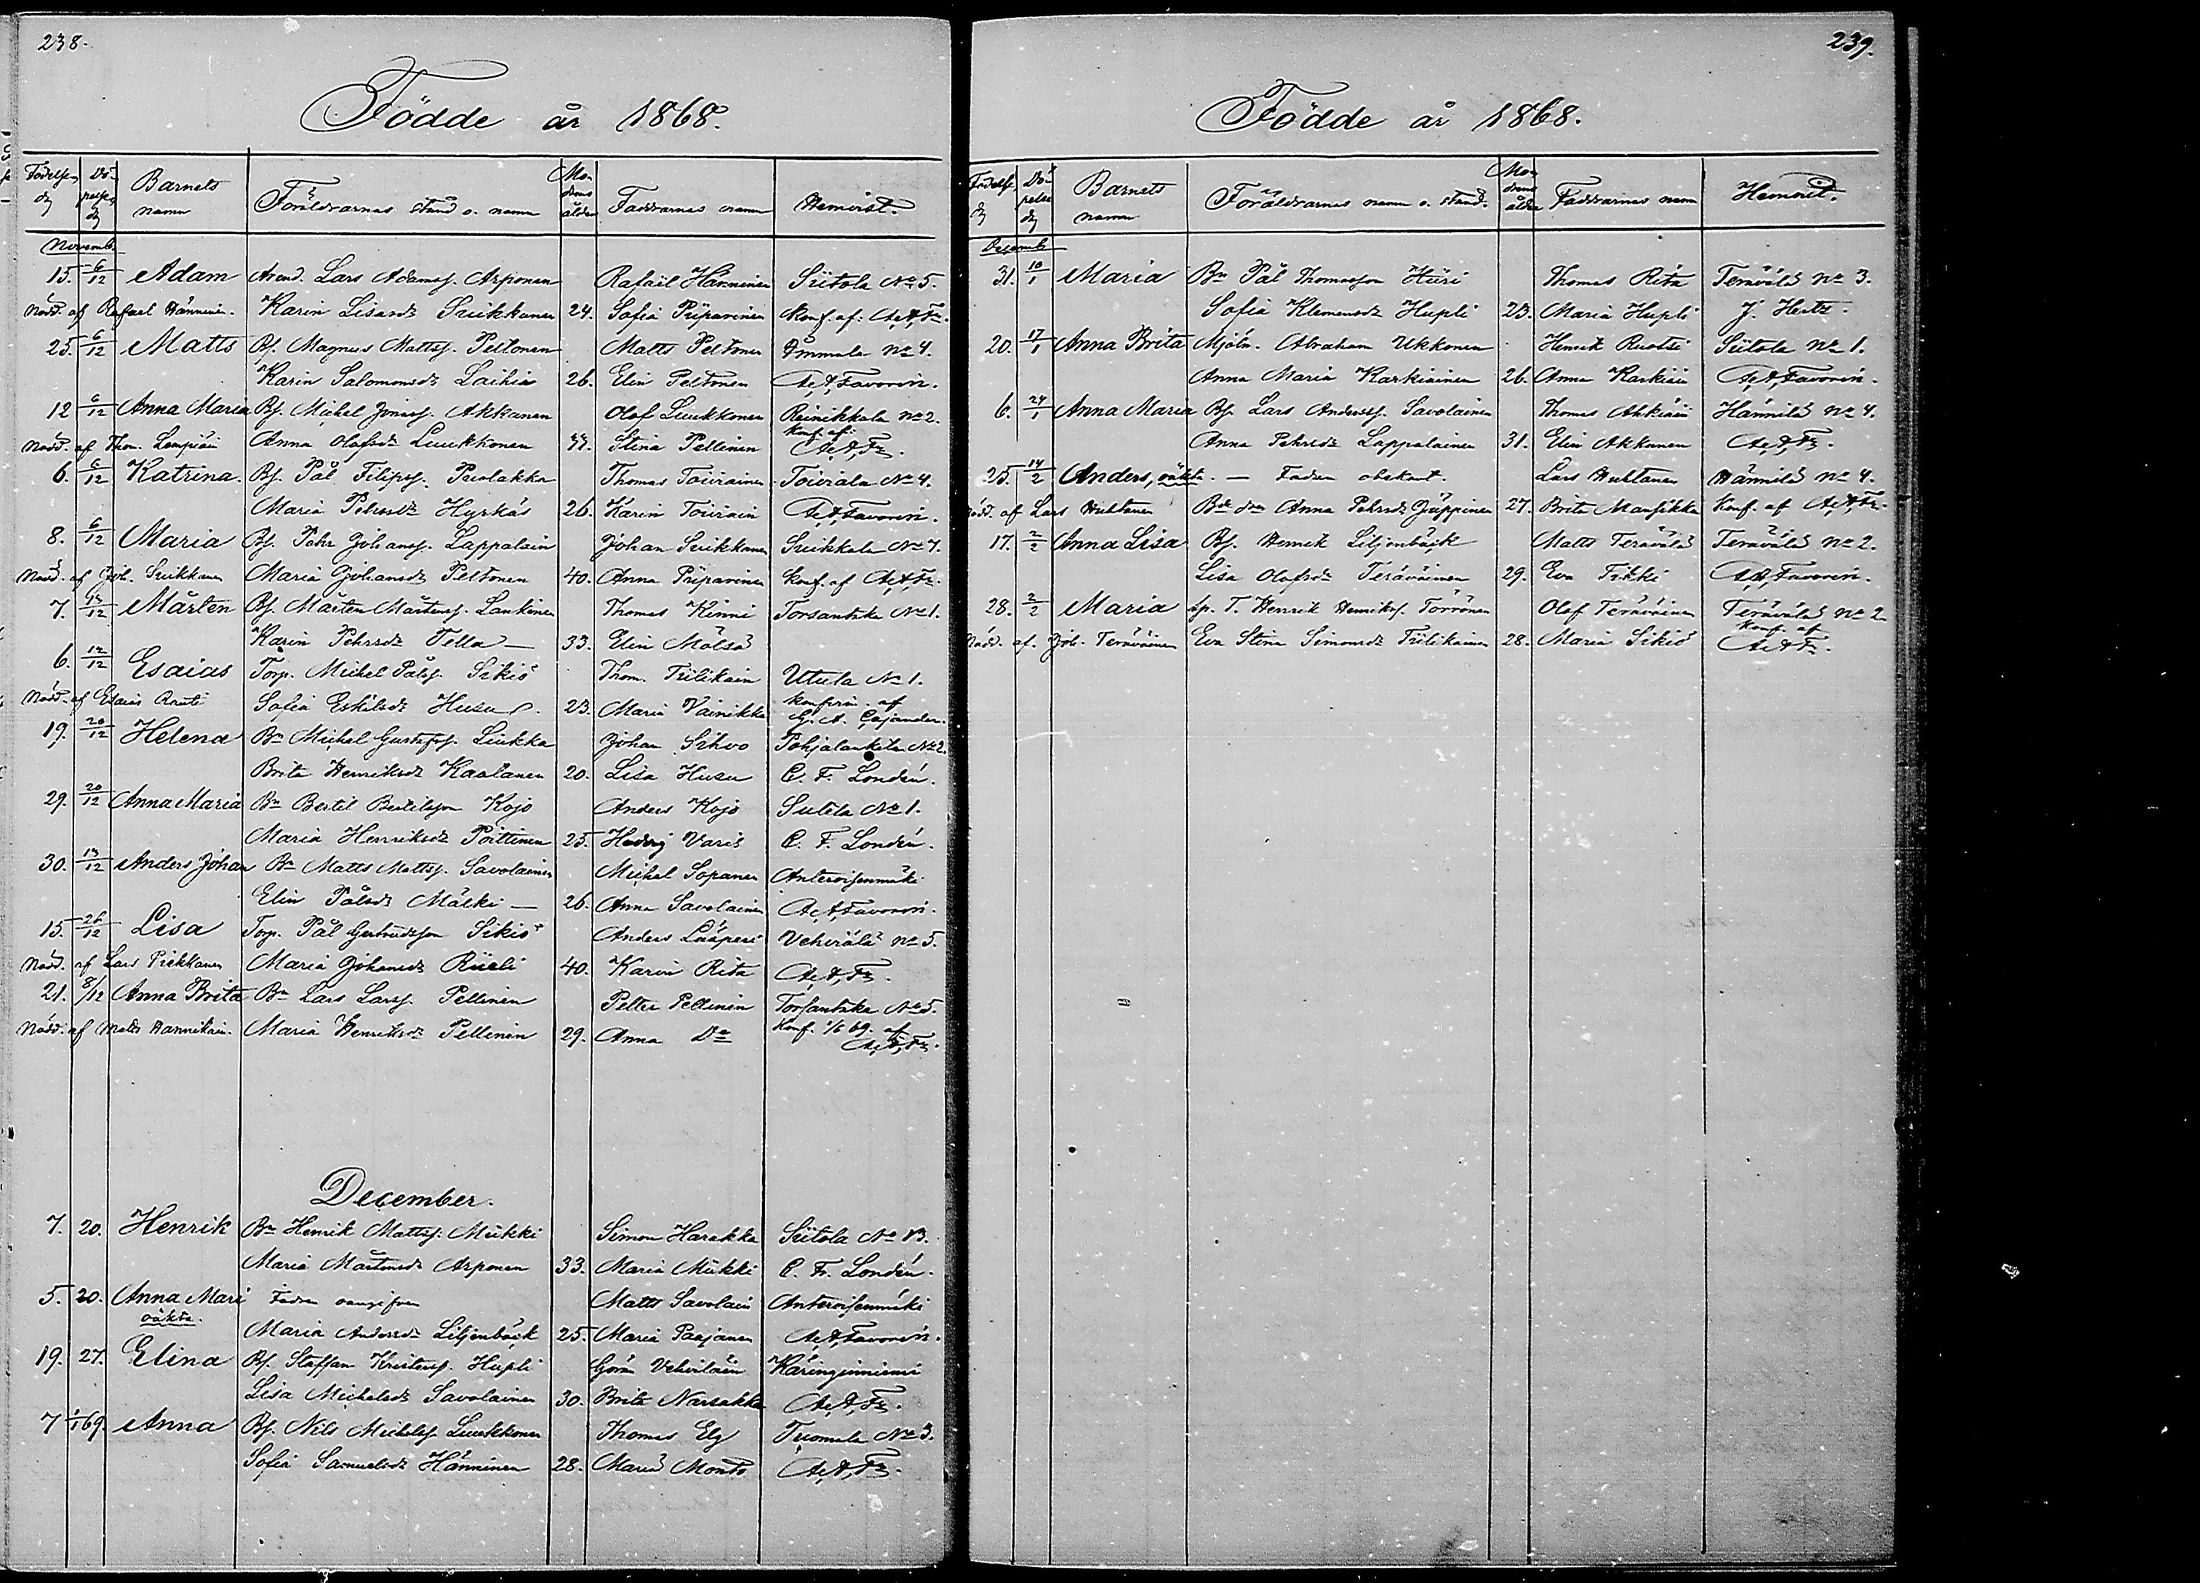 238.
Födde år 1868.
Födelse dg Dö-pelse dg Barnets namn Föräldrarnas stånd o. namn Mo-drens ålder Faddrarnas namn Hemvist.
Novemb.
15. 6/12 Adam Arend. Lars Adamsf. Arponen Rafaël Hänninen Siitola No 5.
Nödd. af Rafael Hänninen. Karin Lisasdr Suikkanen 24. Sofia Piiparinen Konf. af: A. A. Fn.
25. 6/12 Matts Bf. Magnus Mattsf. Peltonen Matts Peltonen Immala No 4.
Karin Salomonsdr Laihia 26. Elin Peltonen A. A. Favorin.
12 6/12 Anna Maria Bf. Michel Jonasf. Akkanen Olof Luukkonen Reinikkala No 2.
Nödd. af Thom. Lempiäi Anna Olofsdr Luukkonen 44. Stina Pellinen Konf. af: A. A. Fn.
6. 6/12 Katrina. Bf. Pål Filipsf. Puolakka Thomas Toivainen Toivala No 4.
Maria Petersdr Hyrkäs 26. Karin Toiviain A. A. Favorin.
8. 6/12 Maria Bf. Pehr Johansf. Lappalain Johan Suikkanen Suikkala No 7.
Nödd. af Joh. Suikkanen Maria Johansdr Peltonen 40. Anna Piiparinen Konf. af A. A. Fn.
7. 13/12 Mårten Bf. Mårten Mårtensf. Lankinen Thomas Kinni Torsantaka No 1.
Karin Pehrsdr Tella — 33. Elin Mölsä
6. 12/12 Esaias Torp. Michel Pålsf. Sikiö Thom. Tiilikain Utula No 1.
Nödd. af Esaias Rauti Sofia Eskilsdr Husu 23. Maria Vainikka Konfirm. af G. A. Cajander.
19. 20/12 Helena Bn Michel Gustafsf. Liukka Johan Sihvo Pohjalankila No 2.
Brita Henriksdr Kaalanen 20. Lisa Husu C. F. Londén.
29. 20/12 Anna Maria Bn Bertil Bertilsson Kojo Anders Kojo Sutela No 1.
Maria Henriksdr Poittinen 25. Hedvig Varis C. F. Londén.
30. 13/12 Anders Johan Bn Matts Mattsf. Savolainen Michel Sopanen Anteroisenmäki
Elin Pålsdr Mälki — 26. Anna Savolainen A. A. Favorin.
15. 26/12 Lisa Torp. Pål Gertrudsson Sikiö Anders Lääperi Vehviälä No 5.
Nödd. af Lars Pirkkanen Maria Johansdr Riieli 40. Karin Rita A. A. Fn.
21. 8/12 Anna Brita Bn Lars Larsf. Pellinen Petter Pellinen Torsantaka No 5.
Nödd. af Matts Hannikai. Maria Henriksdr Pellinen 29. Anna Do Konf. 1/6 69. af A. A. Fn.
December.
7. 20. Henrik Bn Henrik Mattsf. Miikki Simon Harakka Siitola No 13.
Maria Mårtensdr Arponen 33. Maria Miikki C. Fr. Londén.
5. 20. Anna Mari Fadren oangifven Matts Savolain Anteroisenmäki
oäkta. Maria Andersdr Liljenbäck 25. Maria Paajanen A. A. Favorin.
19. 27. Elina Bf. Staffan Kristersf. Hupli Göran Vehviläin Käringinniemi
Lisa Michelsdr Savolainen 30. Brita Narsakka A. A. Fn.
7 1/1 69. Anna Bf. Nils Michelsf. Luukkonen Thomas Elg Tuomala No 3.
Sofia Samuelsdr Hänninen 28. Maria Monto A. A. Fn.
239.
Födde år 1868.
Födelse dg Dö-pelse dg Barnets namn Föräldrarnas namn o. stånd. Mo-drens ålder Faddrarnas namn Hemvist.
Decemb
31. 10/1 Maria Bn Pål Thomasson Hiiri Thomas Rita Terävälä No 3.
Sofia Klemensdr Hupli 23. Maria Hupli J. Hertz.
20. 17/1 Anna Brita Mjöln. Abraham Ukkonen Henrik Ruotsi Siitola No 1.
Anna Maria Karkiainen 26. Anna Karkiain A. A. Favorin.
6. 24/1 Anna Maria Bf. Lars Andersf. Savolainen Thomas Ahkiain Hännilä No 4.
Anna Pehrsdr Lappalainen 31. Elin Akkanen A. A. Fn.
25. 14/2 Anders, oäkta. — Fadren obekant. Lars Huhtanen Hännilä No 4.
Nödd. af Lars Huhtanen Bde dr Anna Pehrsdr Jäppinen 27. Brita Mansikka Konf. af A. A. Fn.
17. 2/2 Anna Lisa Bf. Henrik Liljenbäck Matts Terävälä Terävälä No 2.
Lisa Olofsdr Teräväinen 29. Eva Tikki A. A. Favorin.
28. 2/2 Maria Sp. T. Henrik Henriksf. Törrönen Olof Teräväinen Terävälä No 2
Nödd. af. Joh. Teräväinen Eva Stina Simonsdr Tiilikainen 28. Maria Sikiö Konf. af A. A. Fn.